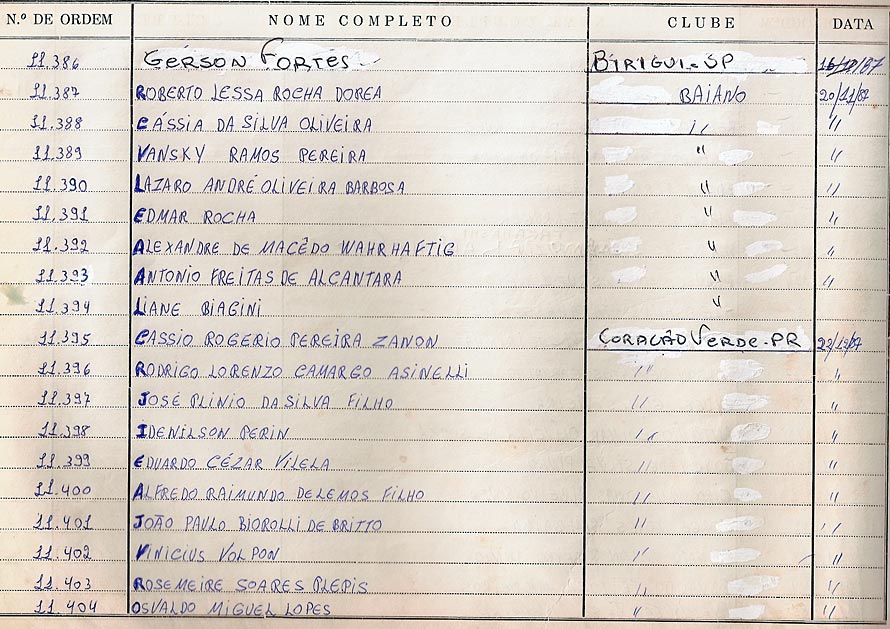 N.º DE ORDEM NOME COMPLETO CLUBE DATA
11.386 GERSON FORTES BIRIGUI-SP /87
11.387 ROBERTO LESSA ROCHA DOREA BAIANO 20/11/87
11.388 CÁSSIA DA SILVA OLIVEIRA " "
11.389 VANSKY RAMOS PEREIRA " "
11.390 LAZARO ANDRÉ OLIVEIRA BARBOSA " "
11.391 EDMAR ROCHA " "
11.392 ALEXANDRE DE MACÊDO WAHRHAFTIG " "
11.393 ANTONIO FREITAS DE ALCANTARA " "
11.394 LIANE BIAGINI "
11.395 CASSIO ROGERIO PEREIRA ZANON CORAÇÃO VERDE-PR
11.396 RODRIGO LORENZO CAMARGO ASINELLI " "
11.397 JOSÉ PLINIO DA SILVA FILHO " "
11.398 IDENILSON PERIN " "
11.399 EDUARDO CÉZAR VILELA " "
11.400 ALFREDO RAIMUNDO DE LEMOS FILHO " "
11.401 JOÃO PAULO BIOROLLI DE BRITTO " "
11.402 VINICIUS VOLPON " "
11.403 ROSEMEIRE SOARES PLEPIS " "
11.404 OSVALDO MIGUEL LOPES " "